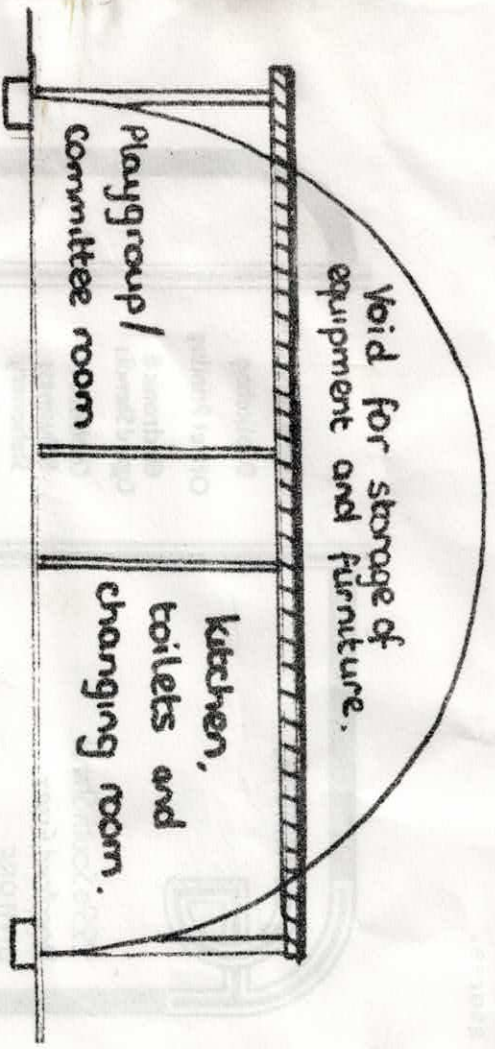 Void for storage of
equipment and furniture.
Playgroup/
committee room
kitchen,
toilets and
changing room.